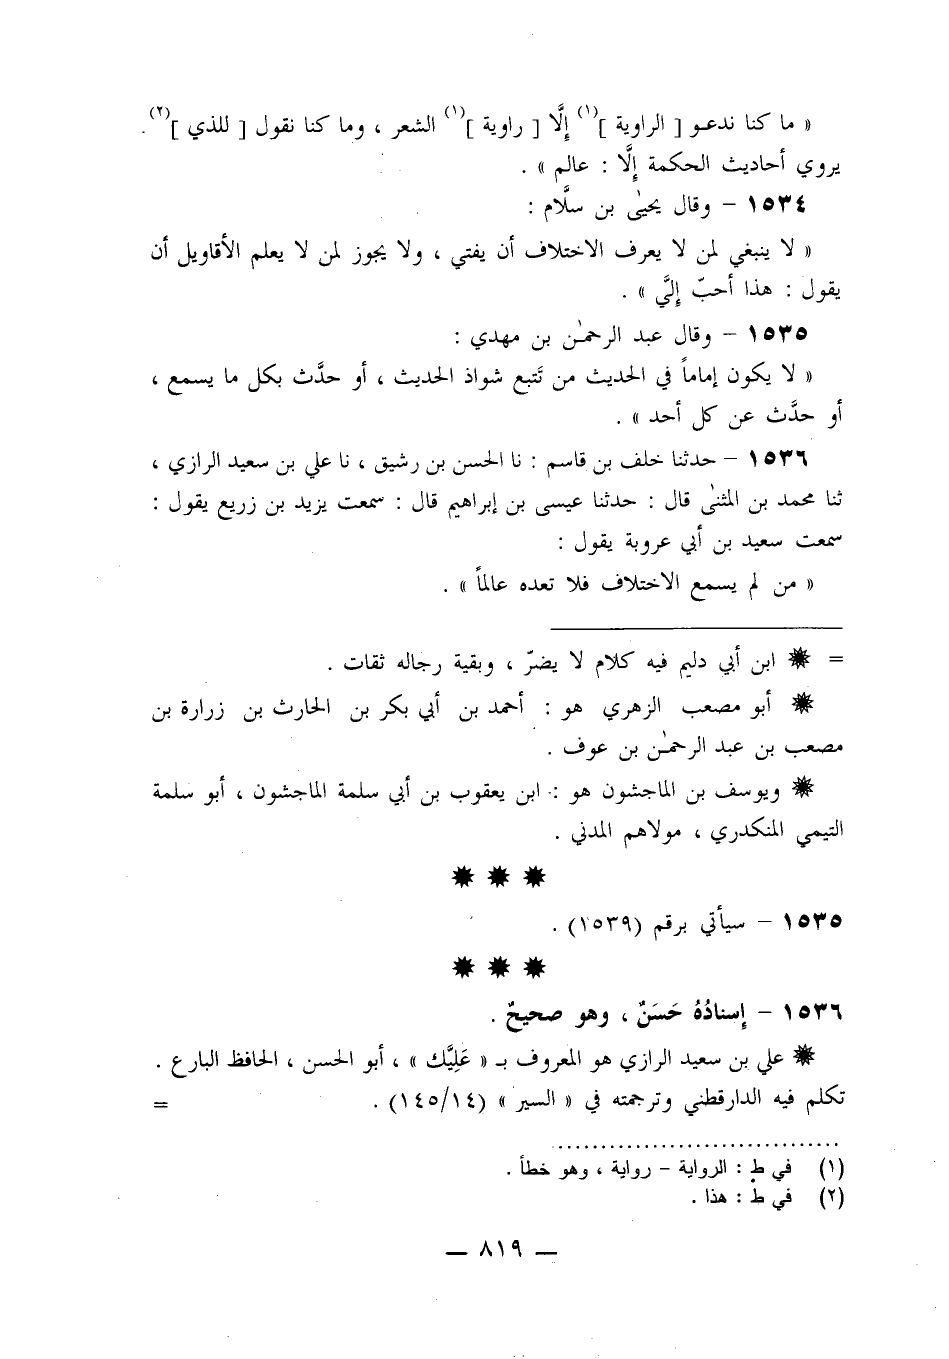 « ما كنا ندعـو [ الراوية ]<sup>(١)</sup> إِلَّا [ راوية ]<sup>(١)</sup> الشعر ، وما كنا نقول [ للذي ]<sup>(٢)</sup>.
يروي أحاديث الحكمة إِلَّا : عالم » .
١٥٣٤ – وقال يحيىٰ بن سلَّام :
« لا ينبغي لمن لا يعرف الاختلاف أن يفتي ، ولا يجوز لمن لا يعلم الأقاويل أن
يقول : هذا أحبّ إِليَّ » .
١٥٣٥ – وقال عبد الرحمٰن بن مهدي :
« لا يكون إماماً في الحديث من تَتبع شواذ الحديث ، أو حدَّث بكل ما يسمع ،
أو حدَّث عن كل أحد » .
١٥٣٦ – حدثنا خلف بن قاسم : نا الحسن بن رشيق ، نا علي بن سعيد الرازي ،
ثنا محمد بن المثنىٰ قال : حدثنا عيسى بن إبراهيم قال : سمعت يزيد بن زريع يقول :
سمعت سعيد بن أبي عروبة يقول :
« من لم يسمع الاختلاف فلا تعده عالماً » .
= ✸ ابن أبي دليم فيه كلام لا يضرّ ، وبقية رجاله ثقات .
✸ أبو مصعب الزهري هو : أحمد بن أبي بكر بن الحارث بن زرارة بن
مصعب بن عبد الرحمٰن بن عوف .
✸ ويوسف بن الماجشون هو : ابن يعقوب بن أبي سلمة الماجشون ، أبو سلمة
التيمي المنكدري ، مولاهم المدني .
✸ ✸ ✸
١٥٣٥ – سيأتي برقم (١٥٣٩) .
✸ ✸ ✸
١٥٣٦ – إِسنادُهُ حَسَنٌ ، وهو صحيحٌ .
✸ علي بن سعيد الرازي هو المعروف بـ « عَلِيَّك » ، أبو الحسن ، الحافظ البارع .
تكلم فيه الدارقطني وترجمته في « السير » (١٤٥/١٤) . =
(١) في ط : الرواية – رواية ، وهو خطأ .
(٢) في ط : هذا .
— ٨١٩ —